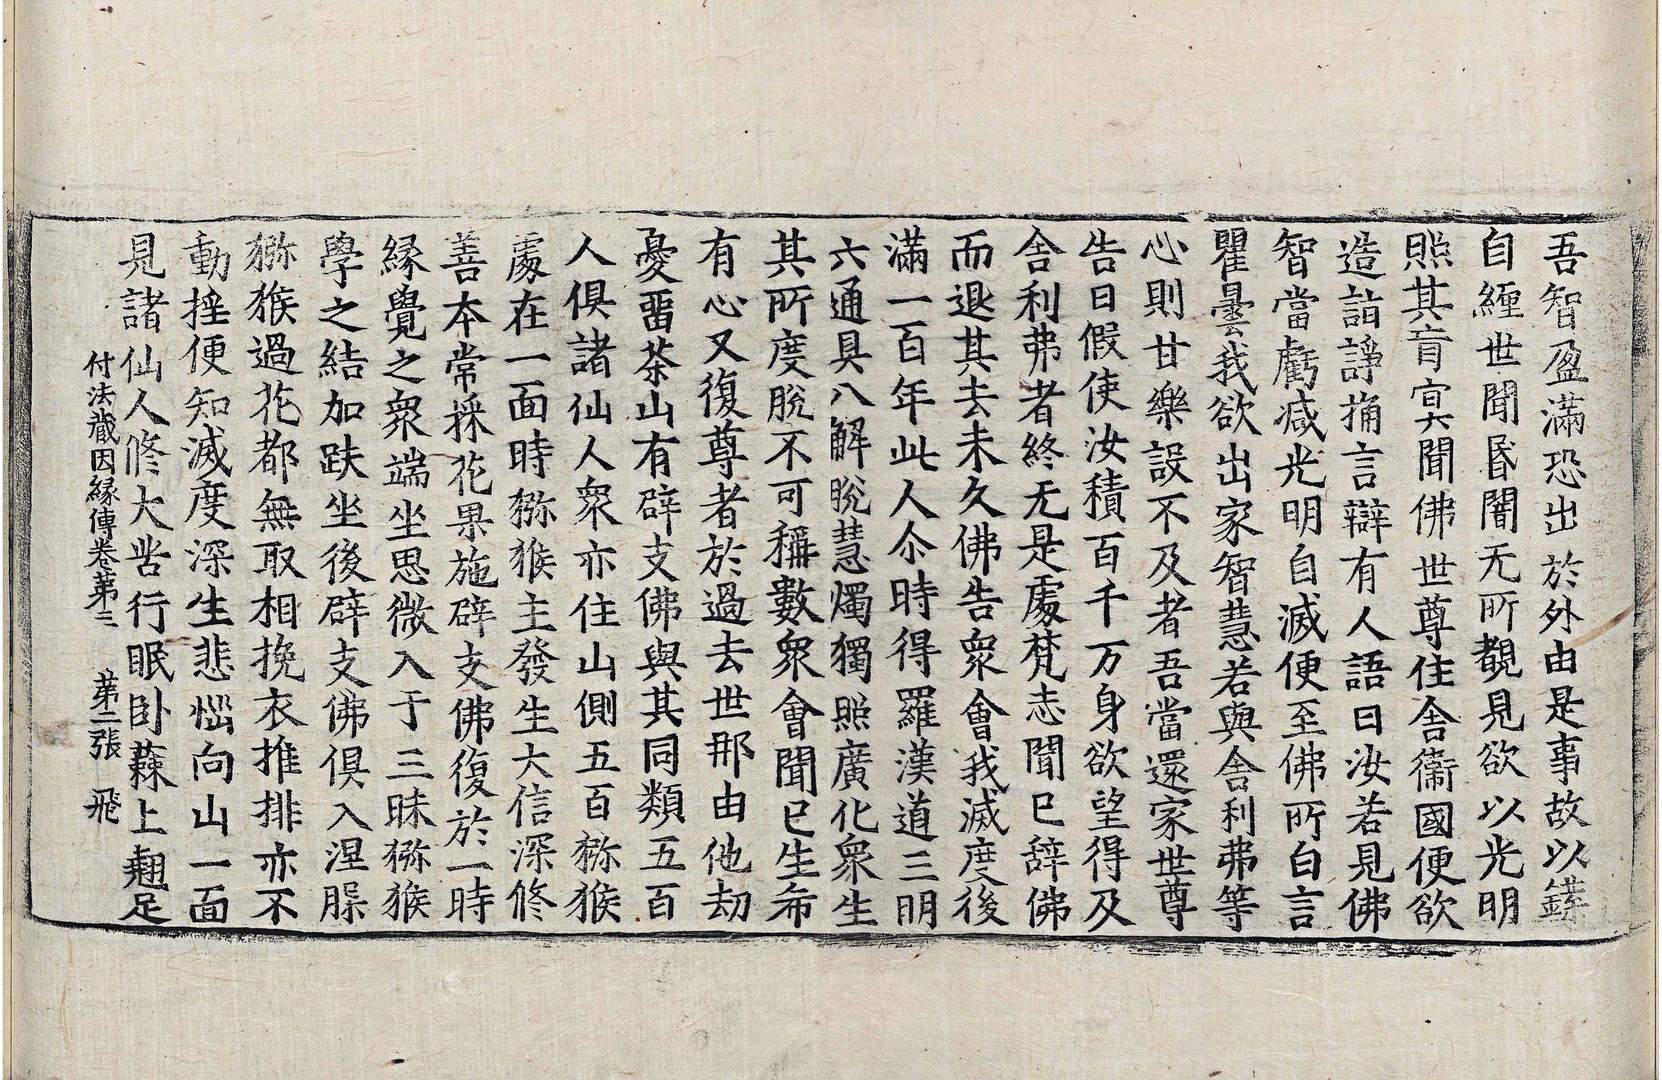 吾智盈滿恐出於外由是事故以鍱
自纏世聞昬闇无所覩見欲以光明
照其肓冥聞佛世尊住舍衞國便欲
造詣諍捔言辯有人語曰汝若見佛
智當虧減光明自滅便至佛所白言
瞿曇我欲出家智慧若與舍利弗等
心則甘樂設不及者吾當還家世尊
告曰假使汝積百千万身欲望得及
舍利弗者終无是處梵志聞已辭佛
而退其去未久佛告衆會我滅度後
滿一百年此人尒時得羅漢道三明
六通具八解脫慧燭獨照廣化衆生
其所度脫不可稱數衆會聞已生希
有心又復尊者於過去世邪由他劫
憂畱茶山有辟支佛與其同類五百
人俱諸仙人衆亦住山側五百猕猴
處在一面時猕猴主發生大信深修
善本常採花果施辟支佛復於一時
緣覺之衆端坐思微入于三昧猕猴
學之結加趺坐後辟支佛俱入涅槃
猕猴過花都無取相挽衣推排亦不
動搖便知滅度深生悲惱向山一面
見諸仙人修大苦行眠卧蕀上翹足
付法藏因緣傳卷第三 第二張 飛